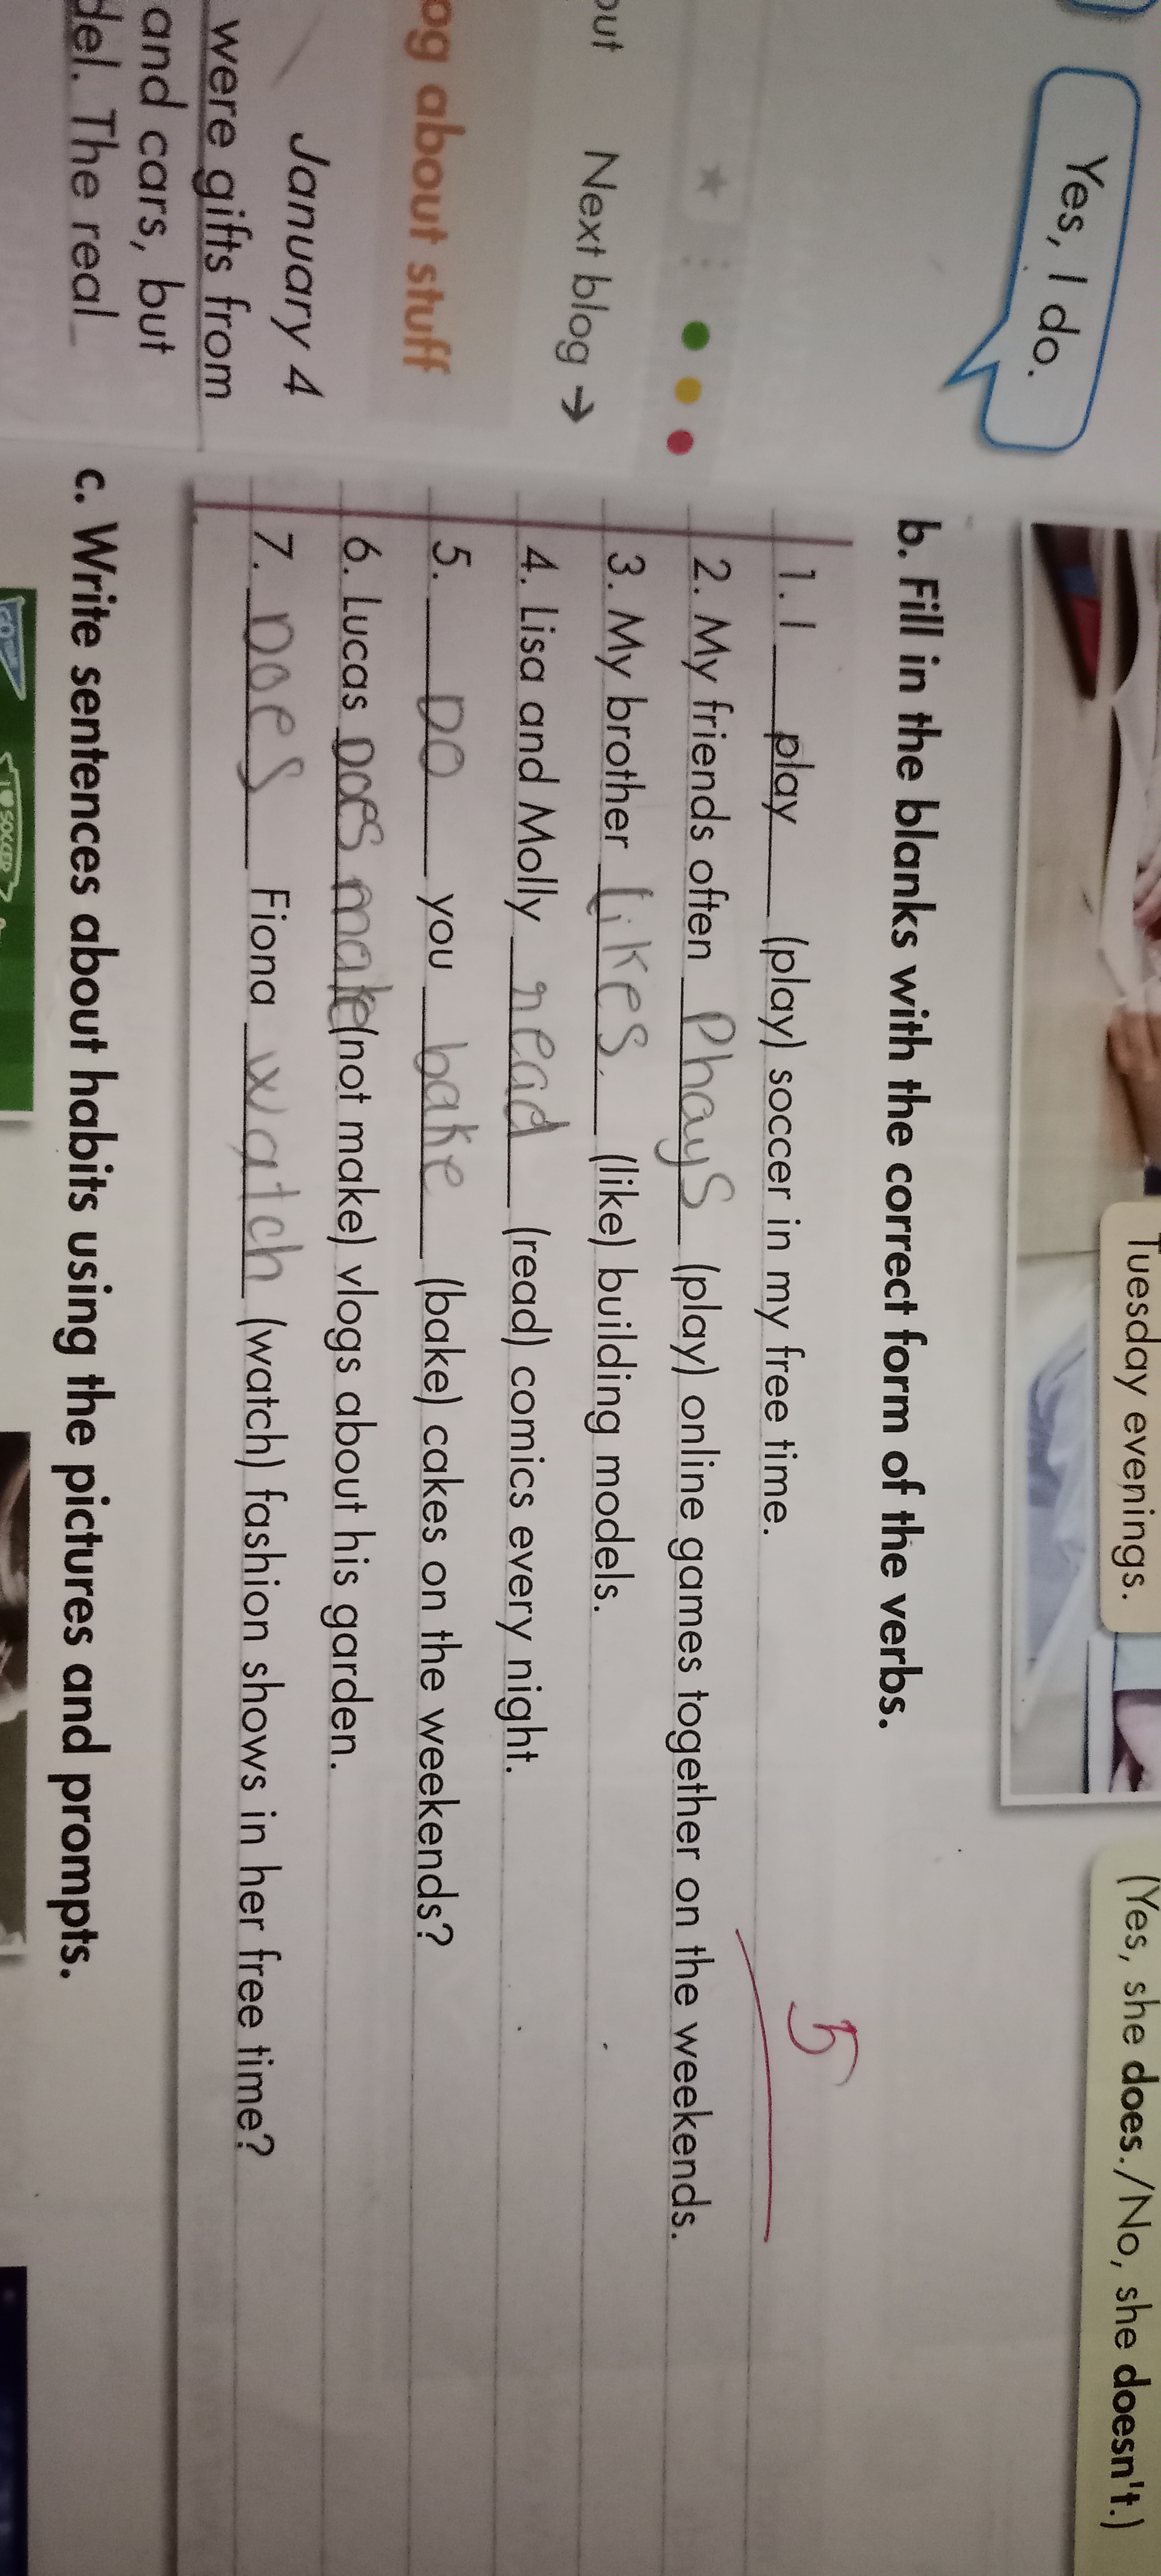 Yes, I do.
Tuesday evenings.
(Yes, she does./No, she doesn't.)
out Next blog →
og about stuff
January 4
were gifts from
and cars, but
del. The real
b. Fill in the blanks with the correct form of the verbs.
5
1. I play (play) soccer in my free time.
2. My friends often Phays (play) online games together on the weekends.
3. My brother likes. (like) building models.
4. Lisa and Molly read (read) comics every night.
5. DO you bake (bake) cakes on the weekends?
6. Lucas Does make (not make) vlogs about his garden.
7. Does Fiona watch (watch) fashion shows in her free time?
c. Write sentences about habits using the pictures and prompts.
GO TEAM
I ♥ SOCCER